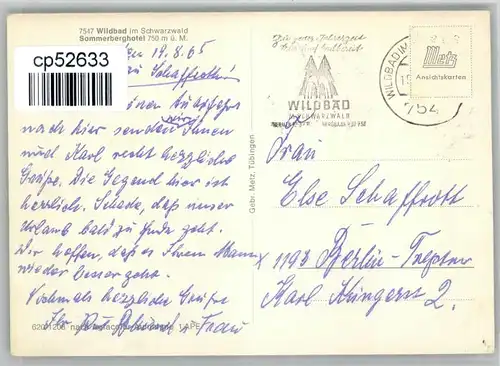 7547 Wildbad im Schwarzwald
Sommerberghotel 750 m ü. M.
19.8.65
cp52633
nach hier senden wir Ihnen
und Karl recht herzliche
Grüße. Die Gegend hier ist
herrlich. Schade, daß unser
Urlaub bald zu Ende geht.
Wir hoffen, daß es Ihrem Mann
wieder besser geht.
Nochmals herzliche Grüße
Frau
Gebr. Metz, Tübingen
WILDBAD
IM SCHWARZWALD
WILDBAD
754
Metz
Ansichtskarten
Frau
Else Schaffrott
1193 Berlin-Treptow
Karl Kungerst 2.